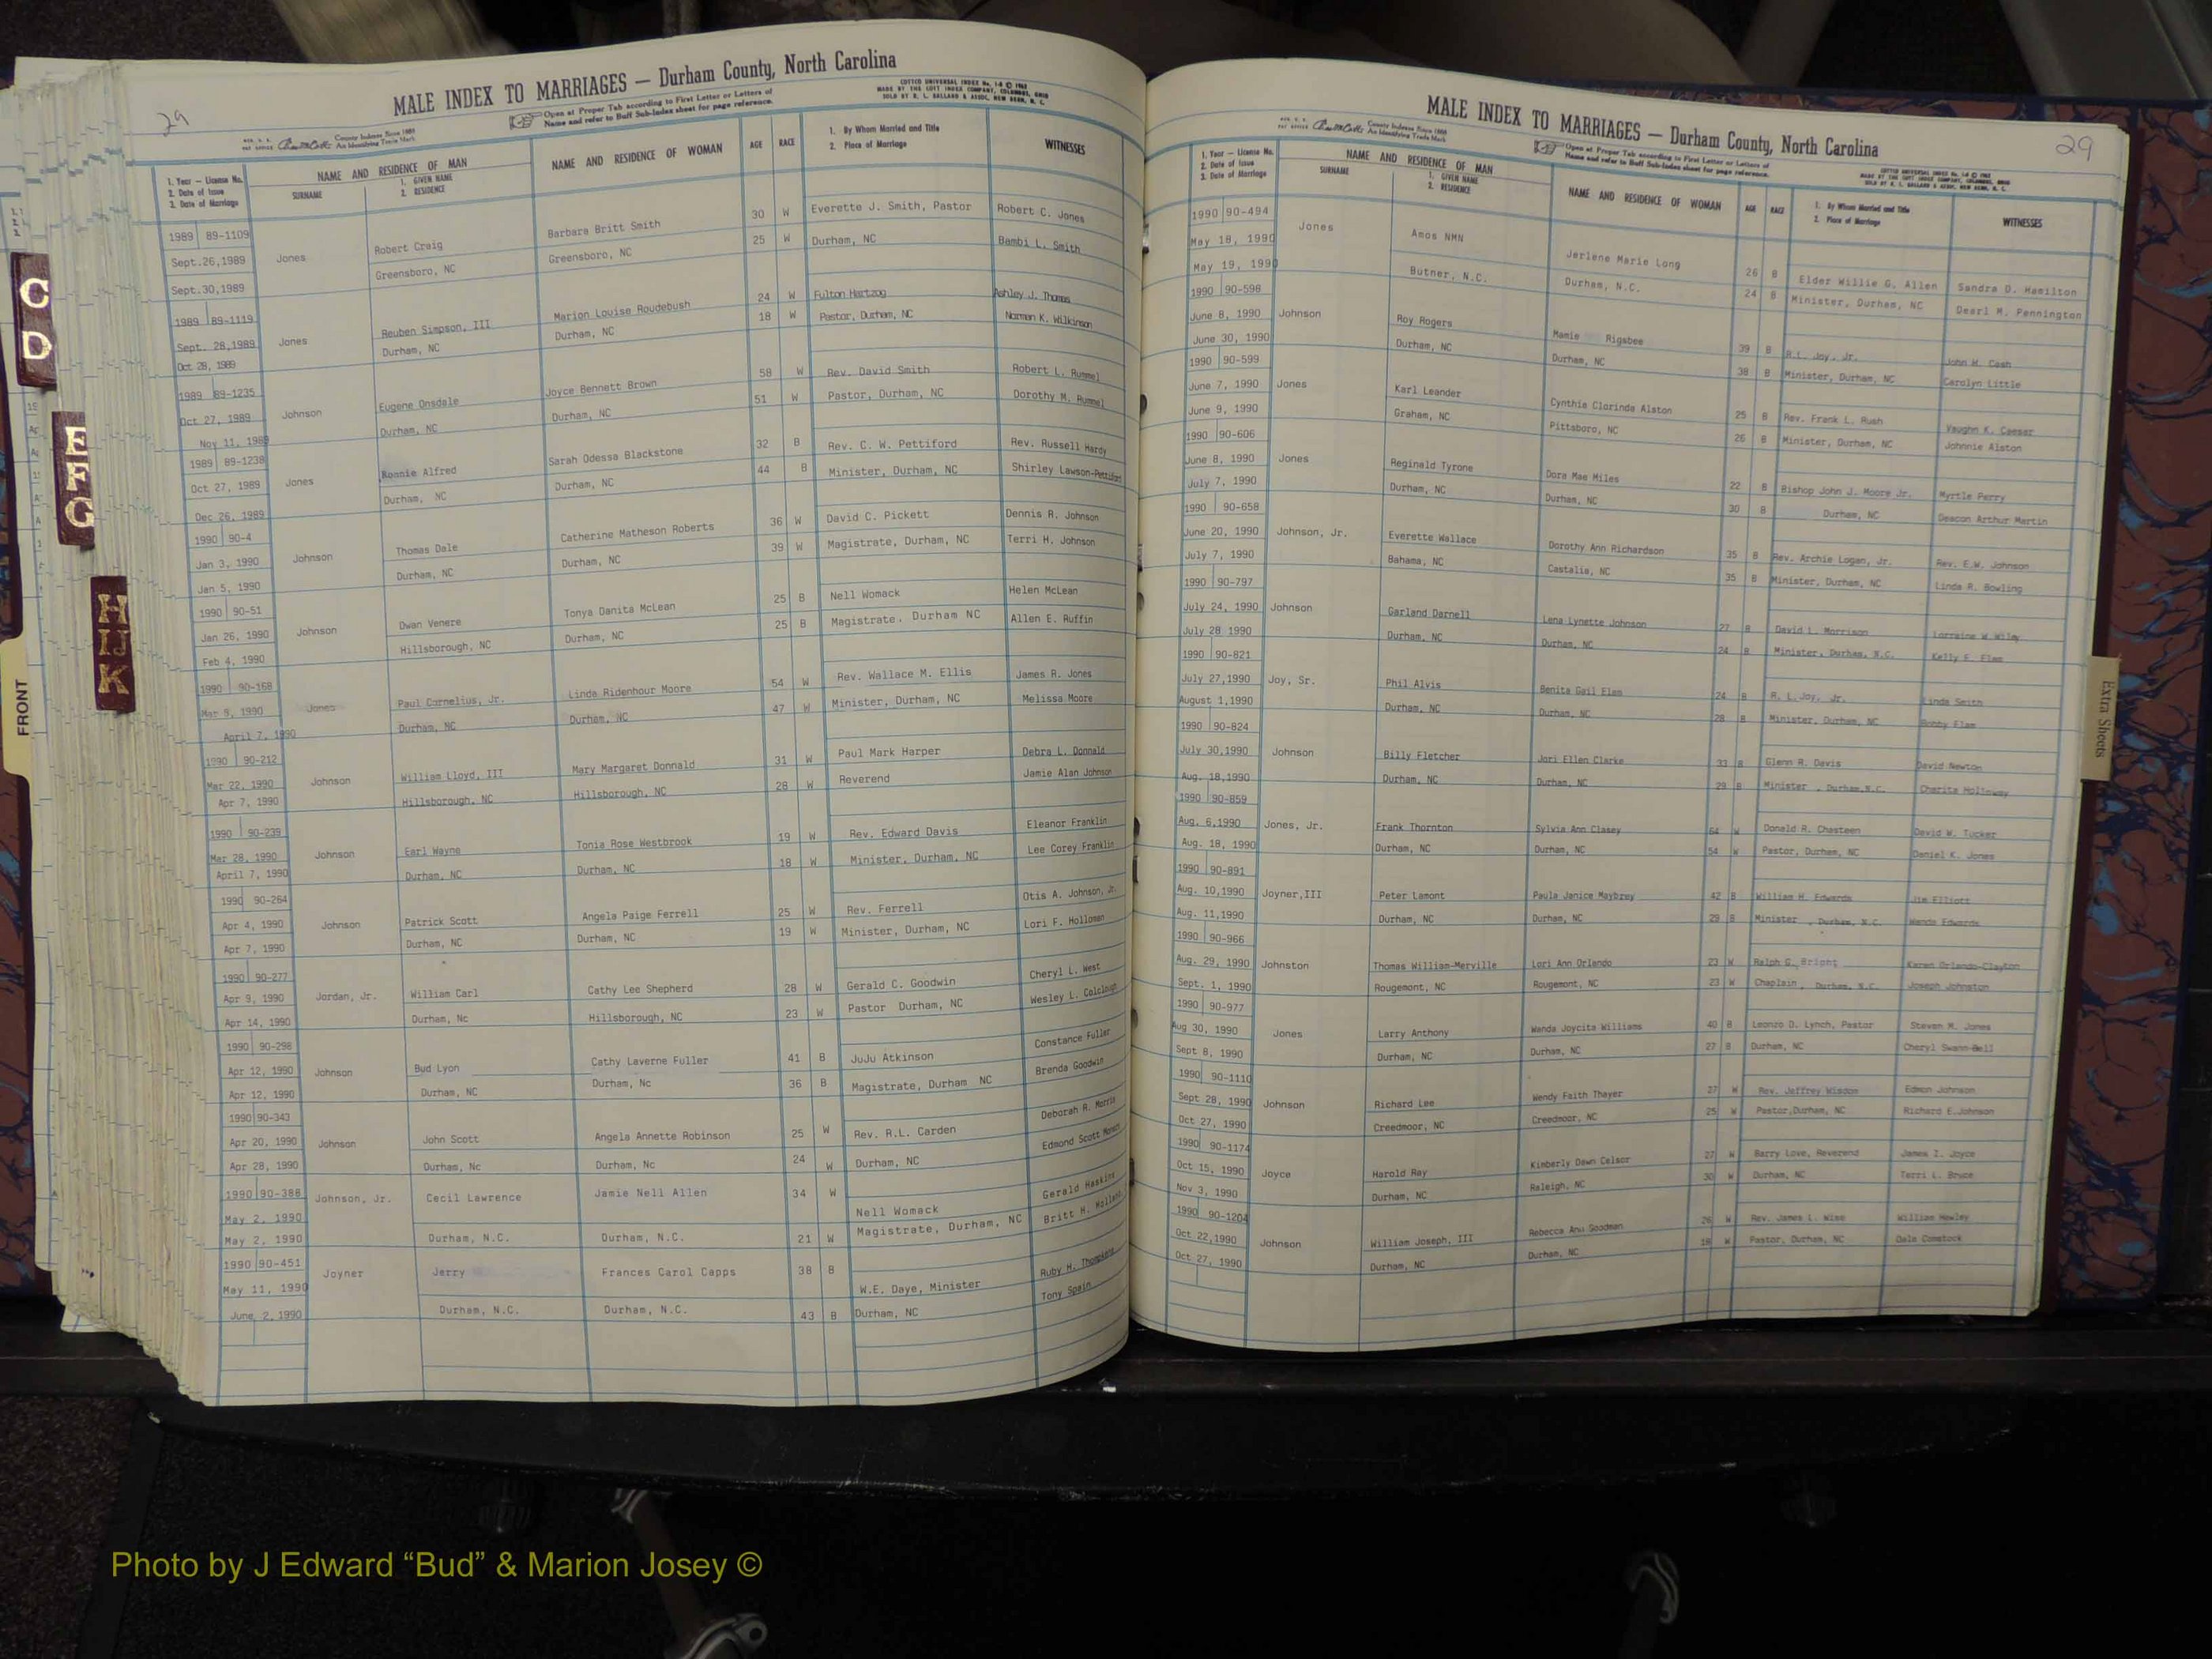 29
MALE INDEX TO MARRIAGES — Durham County, North Carolina
Open at Proper Tab according to First Letter or Letters of
Name and refer to Buff Sub-Index sheet for page reference.
COTTCO UNIVERSAL INDEX
MADE BY THE COTT INDEX COMPANY, COLUMBUS, OHIO
SOLD BY
County Indexes Since 1888
An Identifying Trade Mark
1. Year — License No.
2. Date of Issue
3. Date of Marriage
NAME AND RESIDENCE OF MAN
SURNAME
1. GIVEN NAME
2. RESIDENCE
NAME AND RESIDENCE OF WOMAN
AGE
RACE
1. By Whom Married and Title
2. Place of Marriage
WITNESSES
1989 89-1109 Robert Craig Barbara Britt Smith 30 W Everette J. Smith, Pastor Robert C. Jones
Sept.26,1989 Jones Greensboro, NC Greensboro, NC 25 W Durham, NC Bambi L. Smith
Sept.30,1989
1989 89-1119 Reuben Simpson, III Marion Louise Roudebush 24 W Fulton Hartzog Ashley J. Thomas
Sept. 28,1989 Jones Durham, NC Durham, NC 18 W Pastor, Durham, NC Norman K. Wilkinson
Oct 28, 1989
1989 89-1235 Eugene Onsdale Joyce Bennett Brown 58 W Rev. David Smith Robert L. Rummel
Oct 27, 1989 Johnson Durham, NC Durham, NC 51 W Pastor, Durham, NC Dorothy M. Rummel
Nov 11, 1989
1989 89-1238 Ronnie Alfred Sarah Odessa Blackstone 32 B Rev. C. W. Pettiford Rev. Russell Hardy
Oct 27, 1989 Jones Durham, NC Durham, NC 44 B Minister, Durham, NC Shirley Lawson-Pettiford
Dec 26, 1989
1990 90-4 Thomas Dale Catherine Matheson Roberts 36 W David C. Pickett Dennis R. Johnson
Jan 3, 1990 Johnson Durham, NC Durham, NC 39 W Magistrate, Durham, NC Terri H. Johnson
Jan 5, 1990
1990 90-51 Dwan Venere Tonya Danita McLean 25 B Nell Womack Helen McLean
Jan 26, 1990 Johnson Hillsborough, NC Durham, NC 25 B Magistrate, Durham NC Allen E. Ruffin
Feb 4, 1990
1990 90-168 Paul Cornelius, Jr. Linda Ridenhour Moore 54 W Rev. Wallace M. Ellis James R. Jones
Mar 9, 1990 Jones Durham, NC Durham, NC 47 W Minister, Durham, NC Melissa Moore
April 7, 1990
1990 90-212 William Lloyd, III Mary Margaret Donnald 31 W Paul Mark Harper Debra L. Donnald
Mar 22, 1990 Johnson Hillsborough, NC Hillsborough, NC 28 W Reverend Jamie Alan Johnson
Apr 7, 1990
1990 90-239 Earl Wayne Tonia Rose Westbrook 19 W Rev. Edward Davis Eleanor Franklin
Mar 28, 1990 Johnson Durham, NC Durham, NC 18 W Minister, Durham, NC Lee Corey Franklin
April 7, 1990
1990 90-264 Patrick Scott Angela Paige Ferrell 25 W Rev. Ferrell Otis A. Johnson, Jr.
Apr 4, 1990 Johnson Durham, NC Durham, NC 19 W Minister, Durham, NC Lori F. Holloman
Apr 7, 1990
1990 90-277 William Carl Cathy Lee Shepherd 28 W Gerald C. Goodwin Cheryl L. West
Apr 9, 1990 Jordan, Jr. Durham, Nc Hillsborough, NC 23 W Pastor Durham, NC Wesley L. Colclough
Apr 14, 1990
1990 90-298 Bud Lyon Cathy Laverne Fuller 41 B JuJu Atkinson Constance Fuller
Apr 12, 1990 Johnson Durham, NC Durham, Nc 36 B Magistrate, Durham NC Brenda Goodwin
Apr 12, 1990
1990 90-343 John Scott Angela Annette Robinson 25 W Rev. R.L. Carden Deborah R. Morris
Apr 20, 1990 Johnson Durham, Nc Durham, Nc 24 W Durham, NC Edmond Scott
Apr 28, 1990
1990 90-388 Johnson, Jr. Cecil Lawrence Jamie Nell Allen 34 W Nell Womack Gerald Haskins
May 2, 1990 Durham, N.C. Durham, N.C. 21 W Magistrate, Durham, NC Britt H. Holland
May 2, 1990
1990 90-451 Joyner Jerry Frances Carol Capps 38 B W.E. Daye, Minister Ruby H.
May 11, 1990 Durham, N.C. Durham, N.C. 43 B Durham, NC Tony Spain
June 2, 1990
MALE INDEX TO MARRIAGES — Durham County, North Carolina
29
Open at Proper Tab according to First Letter or Letters of
Name and refer to Buff Sub-Index sheet for page reference.
County Indexes Since 1888
An Identifying Trade Mark
1. Year — License No.
2. Date of Issue
3. Date of Marriage
NAME AND RESIDENCE OF MAN
SURNAME
1. GIVEN NAME
2. RESIDENCE
NAME AND RESIDENCE OF WOMAN
AGE
RACE
1. By Whom Married and Title
2. Place of Marriage
WITNESSES
1990 90-494 Jones Amos NMN Jerlene Marie Long 26 B Elder Willie G. Allen Sandra D. Hamilton
May 18, 1990 Butner, N.C. Durham, N.C. 24 B Minister, Durham, NC Dearl M. Pennington
May 19, 1990
1990 90-598 Roy Rogers Mamie Rigsbee 39 B R.L. Joy, Jr. John H. Cash
June 8, 1990 Johnson Durham, NC Durham, NC 38 B Minister, Durham, NC Carolyn Little
June 30, 1990
1990 90-599 Karl Leander Cynthia Clarinda Alston 25 B Rev. Frank L. Rush Vaughn K. Caesar
June 7, 1990 Jones Graham, NC Pittsboro, NC 26 B Minister, Durham, NC Johnnie Alston
June 9, 1990
1990 90-606 Reginald Tyrone Dora Mae Miles 22 B Bishop John J. Moore Jr. Myrtle Perry
June 8, 1990 Jones Durham, NC Durham, NC 30 B Durham, NC Deacon Arthur Martin
July 7, 1990
1990 90-658 Everette Wallace Dorothy Ann Richardson 35 B Rev. Archie Logan, Jr. Rev. E.W. Johnson
June 20, 1990 Johnson, Jr. Bahama, NC Castalia, NC 35 B Minister, Durham, NC Linda R. Bowling
July 7, 1990
1990 90-797 Garland Darnell Lena Lynette Johnson 27 B David L. Morrison Lorraine W. Wiley
July 24, 1990 Johnson Durham, NC Durham, NC 24 B Minister, Durham, N.C. Kelly E. Elam
July 28 1990
1990 90-821 Phil Alvis Benita Gail Elam 24 B R. L. Joy, Jr. Linda Smith
July 27,1990 Joy, Sr. Durham, NC Durham, NC 28 B Minister, Durham, NC Bobby Elam
August 1,1990
1990 90-824 Billy Fletcher Jori Ellen Clarke 33 B Glenn R. Davis David Newton
July 30,1990 Johnson Durham, NC Durham, NC 29 B Minister , Durham,N.C. Charita Holloway
Aug. 18,1990
1990 90-859 Frank Thornton Sylvia Ann Clasey 64 W Donald R. Chasteen David W. Tucker
Aug. 6,1990 Jones, Jr. Durham, NC Durham, NC 54 W Pastor, Durham, NC Daniel K. Jones
Aug. 18, 1990
1990 90-891 Peter Lamont Paula Janice Maybrey 42 B William H. Edwards Jim Elliott
Aug. 10,1990 Joyner,III Durham, NC Durham, NC 29 B Minister , Durham, N.C. Wanda Edwards
Aug. 11,1990
1990 90-966 Thomas William-Merville Lori Ann Orlando 23 W Ralph G. Bright Karen Orlando-Clayton
Aug. 29, 1990 Johnston Rougemont, NC Rougemont, NC 23 W Chaplain , Durham, N.C. Joseph Johnston
Sept. 1, 1990
1990 90-977 Larry Anthony Wanda Joycita Williams 40 B Leonzo D. Lynch, Pastor Steven M. Jones
Aug 30, 1990 Jones Durham, NC Durham, NC 27 B Durham, NC Cheryl Swann-Bell
Sept 8, 1990
1990 90-1110 Richard Lee Wendy Faith Thayer 27 W Rev. Jeffrey Wisdon Edmon Johnson
Sept 28, 1990 Johnson Creedmoor, NC Creedmoor, NC 25 W Pastor,Durham, NC Richard E.Johnson
Oct 27, 1990
1990 90-1174 Harold Ray Kimberly Dawn Celsor 27 W Barry Love, Reverend James I. Joyce
Oct 15, 1990 Joyce Durham, NC Raleigh, NC 30 W Durham, NC Terri L. Bruce
Nov 3, 1990
1990 90-1204 William Joseph, III Rebecca Anu Goodman 26 W Rev. James L. Wise William Howley
Oct 22,1990 Johnson Durham, NC Durham, NC 18 W Pastor, Durham, NC Dale Comstock
Oct 27, 1990
C
D
E
F
G
H
IJ
K
FRONT
Extra Sheets
Photo by J Edward “Bud” & Marion Josey ©